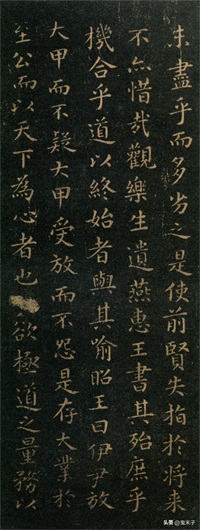 未盡乎而多劣之是使前賢失指於將来
不亦惜哉觀樂生遺燕惠王書其殆庶乎
機合乎道以終始者與其喻昭王曰伊尹放
大甲而不疑大甲受放而不怨是存大業於
至公而以天下為心者也欲極道之量務以
头条